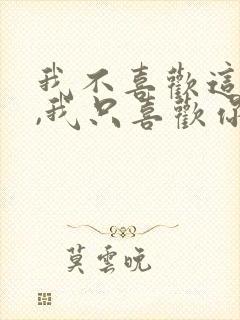 我不喜歡這
,我只喜歡你
莫雲晚